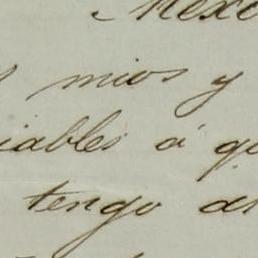 Mexi
mios y
iables á qu
tengo